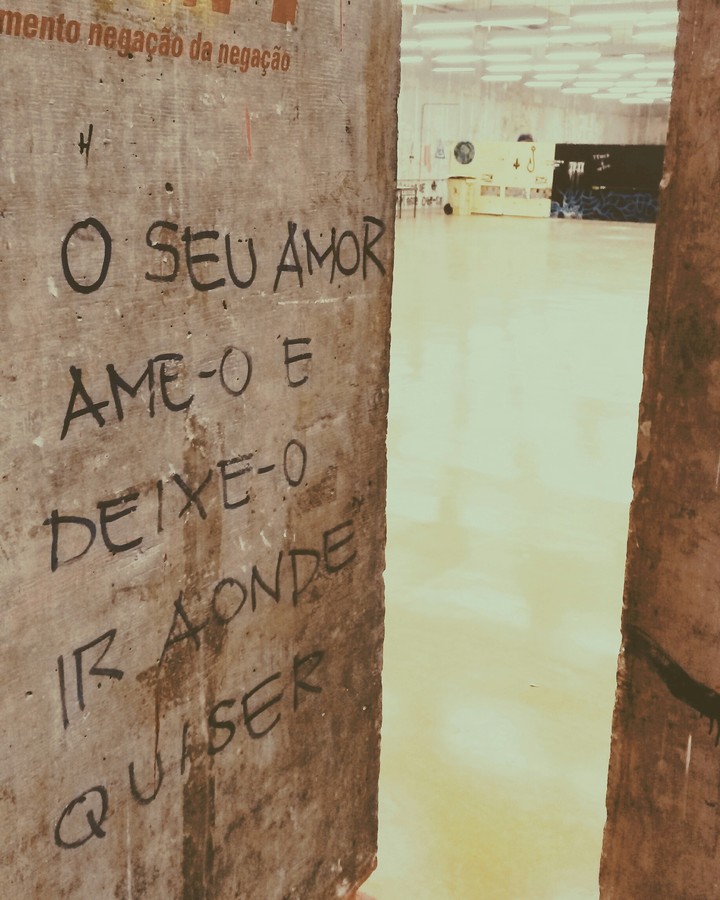 mento negação da negação
H
O SEU AMOR
AME-O E
DEIXE-O
IR AONDE
QUISER